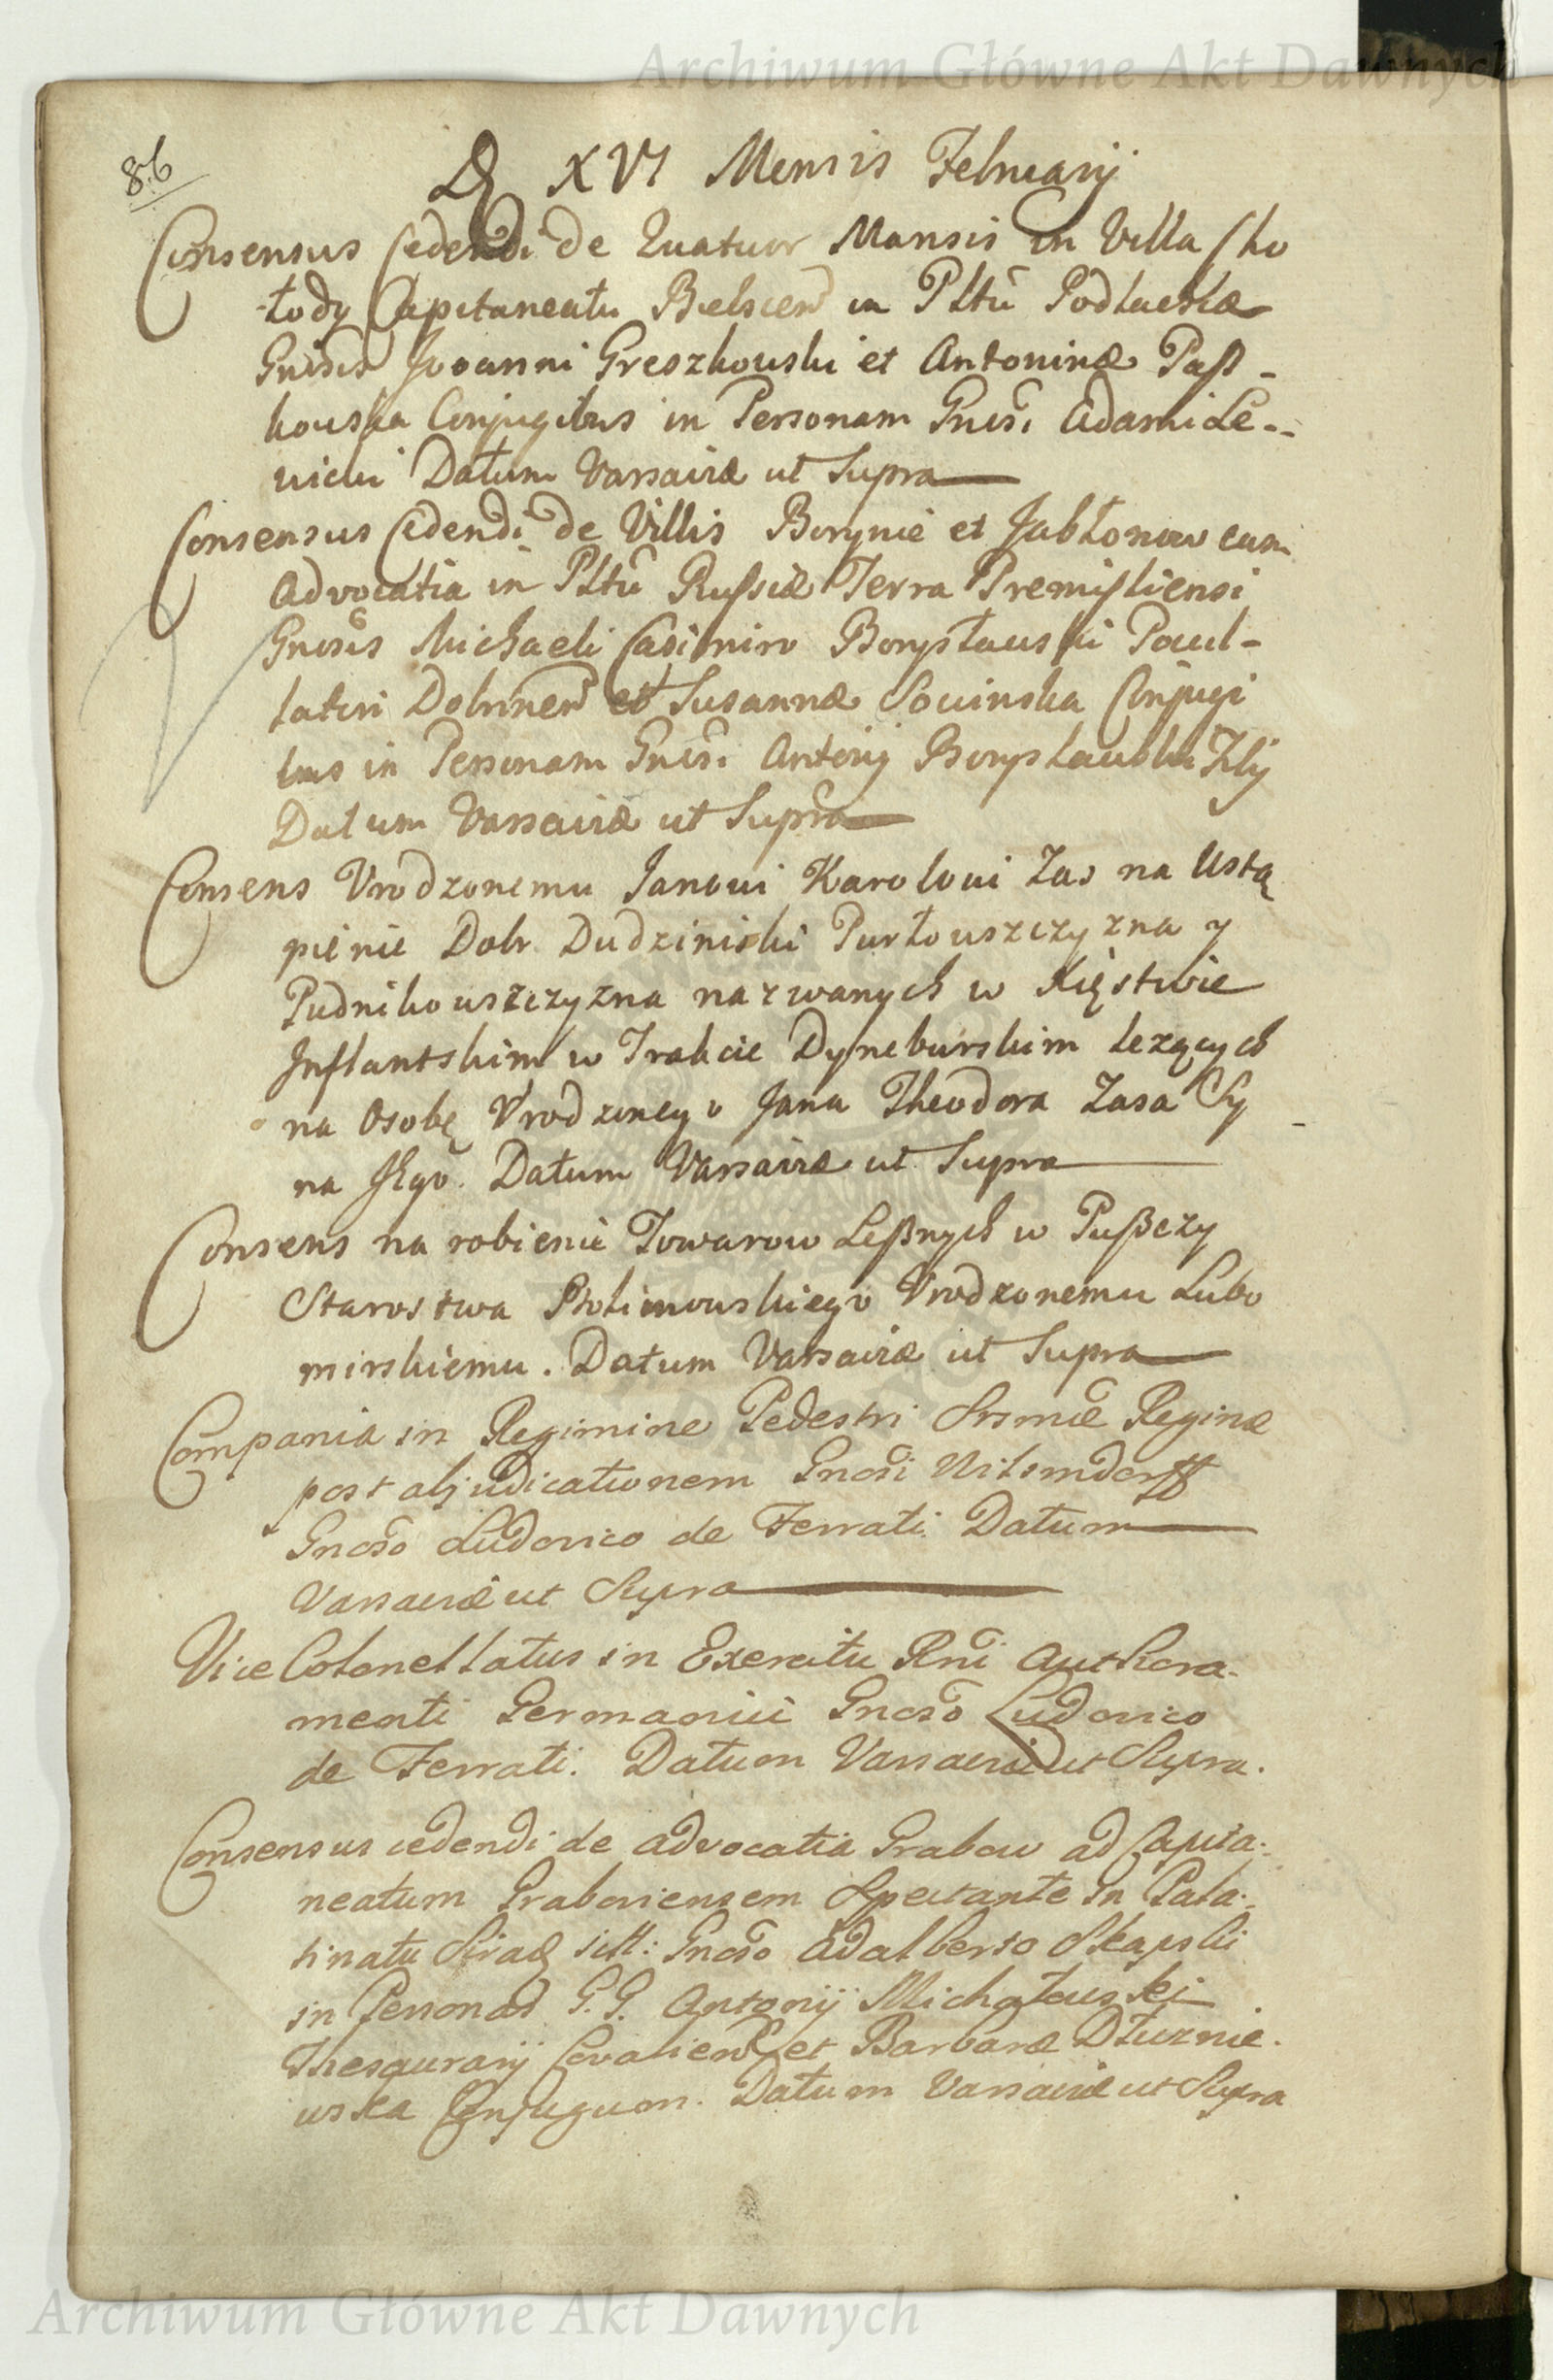 Archiwum Główne Akt Dawnych
86
D XVI Mensis Februarij
Consensus Cedendi de Quatuor Mansis in Villa Cho
łody Capitaneatu Bielscen in Pltu Podlachiæ
Gnosis Joanni Greszkowski et Antoninæ Paß-
kowska Conjugibus in Personam Gnosi Adami Le--
wicki Datum Varsaviæ ut Supra
Consensus Cedendi de Villis Borynie et Jabłonow cum
Advocatia in Pltu Russiæ Terra Premisliensi
Gnosis Michaeli Casimiro Borysławski
Dobrinen et Susannæ Sowinska Conjugi
bus in Personam Gnosi Antonij Borysławski Filij
Datum Varsaviæ ut Supra
Consens Vrodzonemu Janowi Karolowi Zas na Ustą
pienie Dobr Dudziniski Purłowszczyzna y
Pudnikowszczyzna nazwanych w Xięstwie
Inflantskim w Trakcie Dyneburskim lezących
na Osobę Vrodzonego Jana Theodora Zasa Sy
na Jego. Datum Varsaviæ ut Supra
Consens na robienie Towarow Leßnych w Pußczy
Starostwa Bolimowskiego Vrodzonemu Lubo
mirskiemu. Datum Varsaviæ ut Supra
Compania in Regimine Pedestri Srsmæ Reginæ
post abjudicationem Gnosi Wilsmdorff
Gnoso Ludovico de Ferrati Datum
Varsaviæ ut Supra
Vice Colonellatus in Exercitu Rni Authora-
menti Germanici Gnoso Ludovico
de Ferrati. Datum Varsaviæ ut Supra.
Consensus cedendi de advocatia Grabow ad Capita-
neatum Graboviensem Spectante in Pala-
tinatu Sirad sitt: Gnoso Adalberto Skapski
in Personas G.G. Antonij Michałowski
Thesaurarij Covalien et Barbaræ Dłuznie-
wska Conjugum. Datum Varsaviæ ut Supra
Archiwum Główne Akt Dawnych